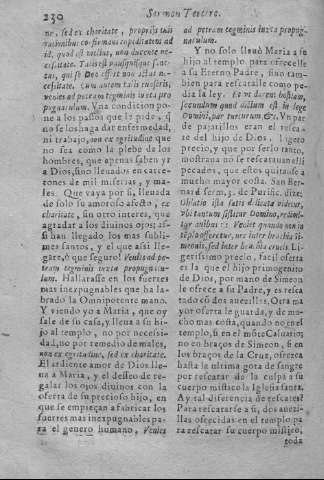 230 Sermon Tercero.
ne, sed ex charitate, propriis tuis
rationibus confirmans expeditatem ad
id, quod est vocibus, non ducente ne-
cessitate.
cus, qui se Deo offert non adhuc n-
cessitate. Cum autem talis fueris,
venies ad petram tegminis iuxta pro
pugnaculum. Vna condicion po-
ne a los passos que le pide, q̃
no se los haga dar enfermedad,
ni trabajo, non ex egritudine que
no sea como la plebe de los
hombres, que apenas saben yr
a Dios, sino lleuados en carre-
tones de mil miserias, y ma-
les. Que vaya por si, lleuada
de solo su amoroso afecto, ex
charitate, sin otro interes, que
agradar a los diuinos ojos: as-
si han llegado los mas subli-
mes santos, y el que assi lle-
gare, ò que seguro! Venies ad pe-
tram tegminis iuxta propugnacu-
lum. Hallarasse en los fuertes
mas inexpugnables que ha la-
brado la Omnipotente mano.
Y viendo yo a Maria, que oy
sale de su casa, y lleua a su hi-
jo al templo, no por necessi-
dad, no por remedio de males,
non ex egritudine, sed ex charitate.
El ardiente amor de Dios lle-
ua a Maria, y el desseo de re-
galar los ojos diuinos con la
oferta de su precioso hijo, en
que se empieçan a fabricar los
fuertes mas inexpugnables pa-
ra el genero humano, Venies
ad petram tegminis iuxta propug-
naculum.
Y no solo lleuò Maria a su
hijo al templo para ofrecelle
a su Eterno Padre, sino tam-
bien para rescatalle como pe-
dia la ley. Et vt darent hostiam,
secundum quod dictum est in lege
Domini, par turturum &c. Vn par
de pajarillos eran el resca-
te del hijo de Dios, ligero
precio, y que por serlo tanto,
mostraua no se rescatauan alli
pecados, que estos quitanse a
mucho mayor costa. San Ber-
nard. serm. 3. de Purific. dize.
Oblatio ista satis delicata videtur,
vbi tantum sistitur Domino, redimi-
tur auibus: Veniet quando non in
templo offeretur, nec inter brachia Si-
meonis, sed inter brachia crucis. Li-
gerissimo precio, facil oferta
es la que el hijo primogenito
de Dios, por mano de Simeon
le ofrece a su Padre, y es resca
tado cõ dos auezillas. Otra ma
yor oferta le guarda, y de mu-
cho mas costa, quando no en el
templo, si en el mõte Caluario;
no en braços de Simeon, si en
los braços de la Cruz, ofrezca
hasta la vltima gota de sangre
por rescatar de la culpa a su
cuerpo mistico la Iglesia santa.
Ay tal diferencia de rescates?
Para rescatarse a si, dos auezi-
llas ofrecidas en el templo; pa
ra rescatar su cuerpo mistico,
toda